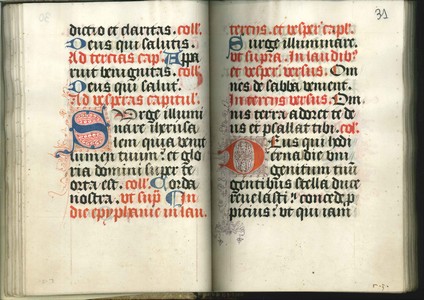 dictio et claritas. coll.
Deus qui salutis.
Ad tercias cap. Appa
ruit benignitas. coll.
Deus qui salut.
Ad vesperas capitul.
Surge illumi
nare iherusa
lem quia venit
lumen tuum: et glo
ria domini super te
orta est. coll. Corda
nostra. vt sup. In
die epyphanie in lau.
31
tercijs. et vesper. capl.
Surge illuminare.
vt supra. In laudib9
et vesper. versus. Om
nes de sabba venient.
In tercijs versus. Om
nis terra adoret te de
us et psallat tibi. col.
Deus qui hodi
erna die vni
genitum tuum
gentibus stella duce
reuelasti: concede p
picius: vt qui iam